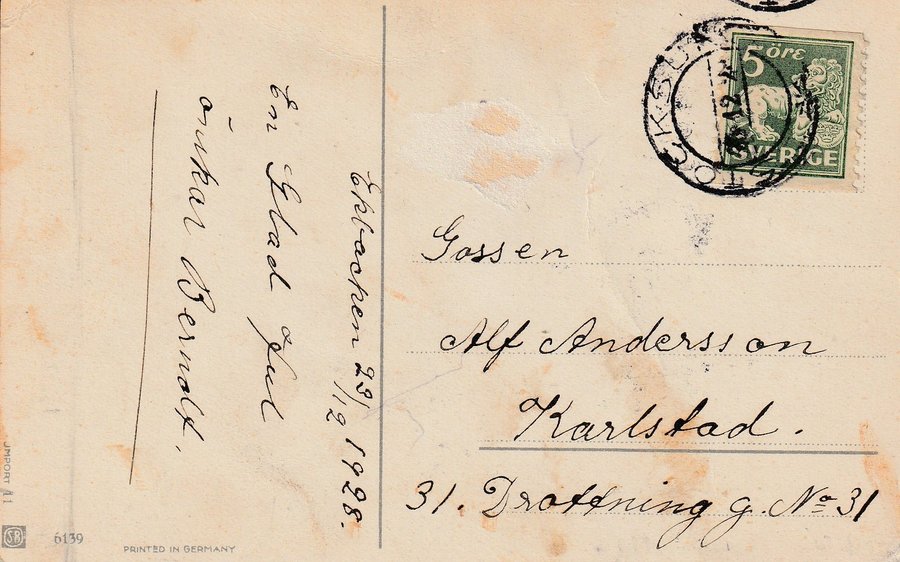 Ekbacken 23/12 1928.
En Glad Jul
önskar Bernolf.
5 ÖRE
SVERIGE
STOCKSUND
Gossen
Alf Andersson
Karlstad.
31. Drottning g. No 31
JMPORT
SB
6139
PRINTED IN GERMANY